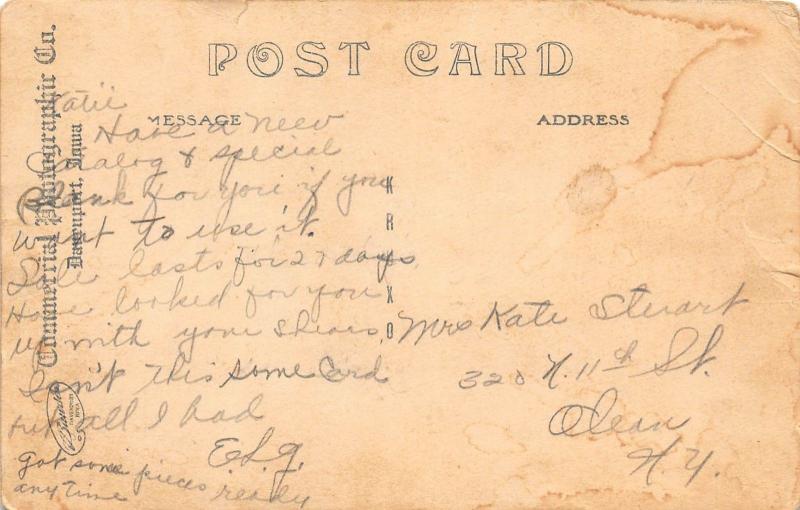 POST CARD
MESSAGE
ADDRESS
Commercial Photographic Co.
Davenport, Iowa
Katie
Have a new
Catalog & special
Blank for you if you
want to use it.
Sale lasts for 27 days
Have looked for you
up with your shears,
Isn't this some Card
but all I had
E.L.G.
got some pieces ready
any time
KRUXO
Mrs Kate Stewart
320 N. 11th St.
Olean
N.Y.
DAVENPORT
IOWA